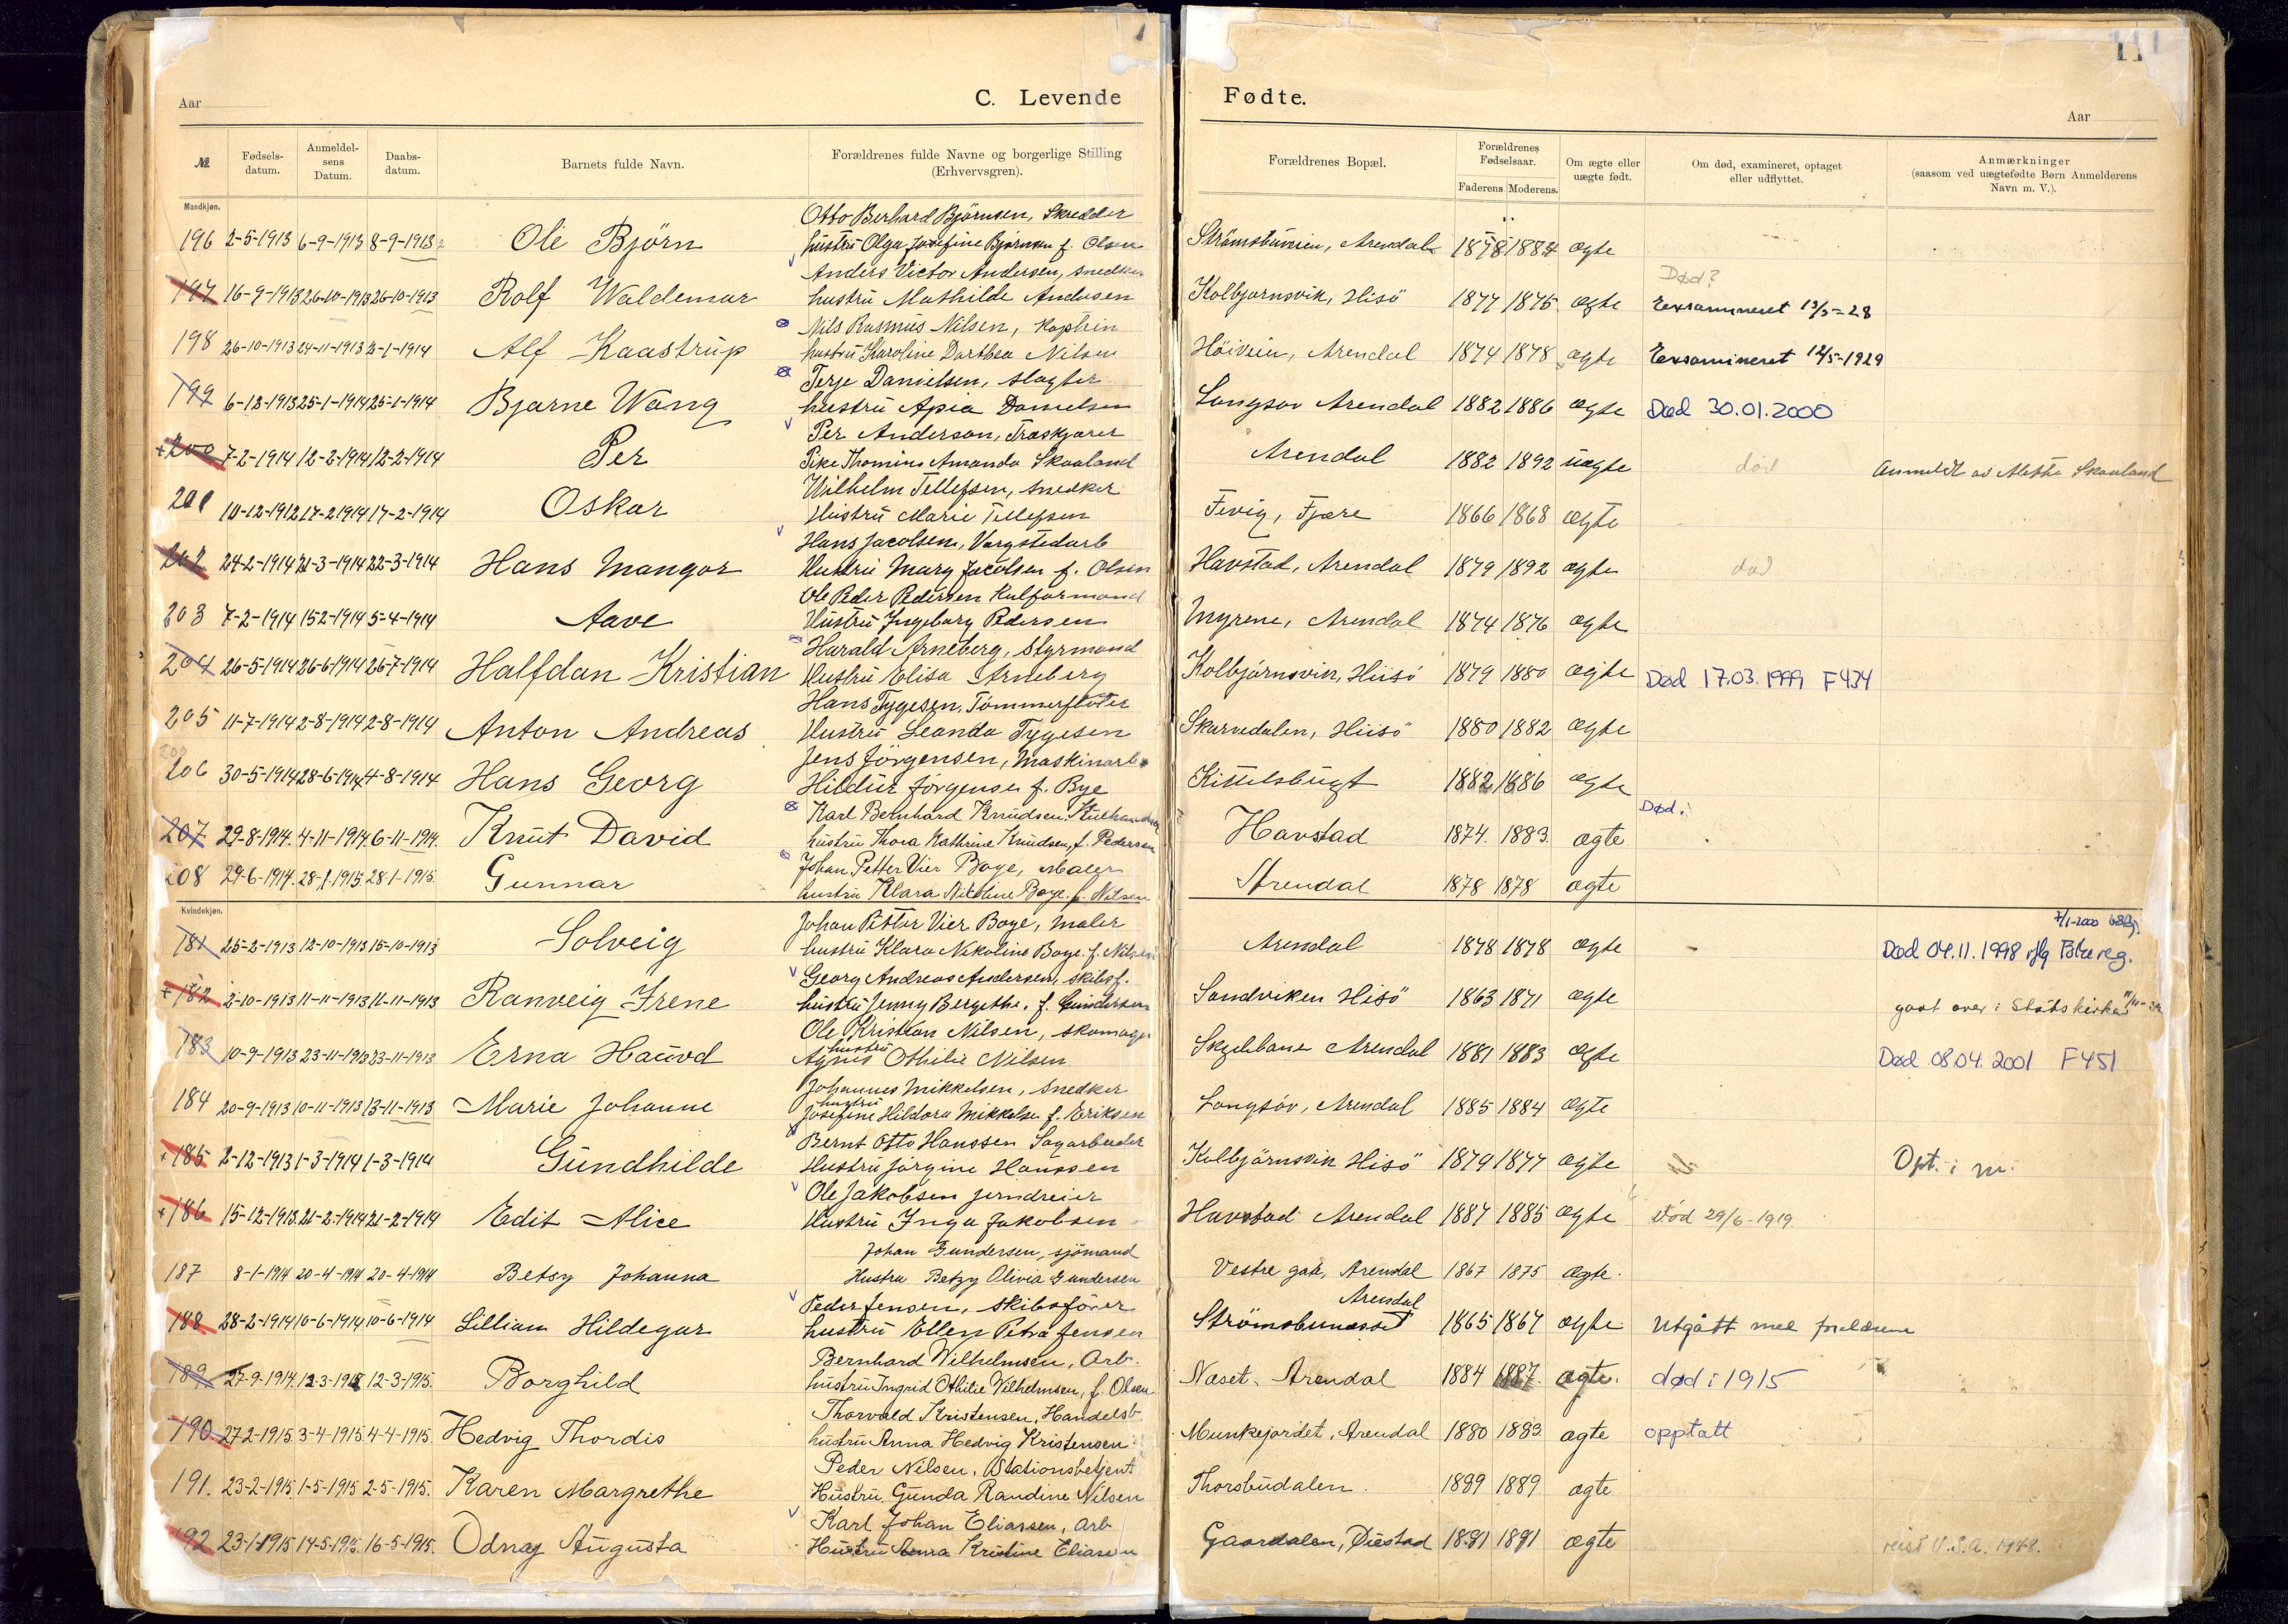 111
Aar
C. Levende Fødte.
Aar
№
Fødsels-datum.
Anmeldel-sens Datum.
Daabs-datum.
Barnets fulde Navn.
Forældrenes fulde Navne og borgerlige Stilling (Erhvervsgren).
Forældrenes Bopæl.
Forældrenes Fødselsaar.
Faderens. Moderens.
Om ægte eller uægte født.
Om død, examineret, optaget eller udflyttet.
Anmærkninger (saasom ved uægtefødte Børn Anmelderens Navn m. V.).
Mandkjøn.
Otto Berhard Björnsen, Skredder
196 2-5-1913 6-9-1913 8-9-1913 Ole Björn hustru Olga Josefine Björnsen f. Olsen Arendal 1878 1884 ægte
Anders Victor Andersen, snedker
Død?
197 16-9-1913 26-10-1913 26-10-1913 Rolf Waldemar hustru Mathilde Andersen Kolbjornsvik, Hisö 1877 1875 ægte Eexsamineret 13/5-28
Nils Rasmus Nilsen, kaptein
198 26-10-1913 24-11-1913 2-1-1914 Alf Kaastrup hustru Karoline Dorthea Nilsen Höiveien, Arendal 1874 1878 ægte Eexsamineret 12/5-1929
Terje Danielsen, slagter
199 6-12-1913 25-1-1914 25-1-1914 Bjarne Wang hustru Apia Danielsen Langsæv Arendal 1882 1886 ægte Død 30.01.2000
Per Anderson, Træskjærer
+200 7-2-1914 12-2-1914 12-2-1914 Per Pike Thomine Amanda Skaaland Arendal 1882 1892 uægte död Anmeldt av Skaaland
Wilhelm Tellefsen, snedker
201 10-12-1912 17-2-1914 17-2-1914 Oskar Hustru Marie Tellefsen Fevig, Fjære 1866 1868 ægte
Hans Jacobsen, Værgstedarb
202 24-2-1914 21-3-1914 22-3-1914 Hans Mangor Hustru Mary Jacobsen f. Olsen Havstad, Arendal 1879 1892 ægte död
Ole Peder Pedersen Kulformand
203 7-2-1914 15-2-1914 5-4-1914 Aave Hustru Ingeborg Pedersen Myrene, Arendal 1874 1876 ægte
Harald Arneberg, Styrmand
204 26-5-1914 26-6-1914 26-7-1914 Halfdan Kristian Hustru Elisa Arneberg Kolbjörnsvik, Hisö 1879 1880 ægte Død 17.03.1999 F434
Hans Tygesen, Tömmerfløter
205 11-7-1914 2-8-1914 2-8-1914 Anton Andreas Hustru Leanda Tygesen Skarvedalen, Hisö 1880 1882 ægte
Jens Jörgensen, Maskinarb.
206 30-5-1914 28-6-1914 4-8-1914 Hans Georg Hildur Jörgensen f. Bye Kittelsbugt 1882 1886 ægte
Karl Bernhard Knudsen,
Død.
207 29-8-1914. 4-11-1914. 6-11-1914. Knut David hustru Thora Kathrine Knudsen, f. Pedersen Havstad 1874. 1883. ægte
Johan Petter Vier Boye, Maler
208 29-6-1914. 28-1-1915. 28-1-1915. Gunnar hustru Klara Nikoline Boye. f. Nilsen Arendal 1878 1878 ægte
Kvindekjøn.
Johan Petter Vier Boye, Maler
7/1-2000
181 25-2-1913 12-10-1913 15-10-1913 Solveig hustru Klara Nikoline Boye. f. Nilsen Arendal 1878 1878 ægte Død 04.11.1998 iflg
Georg Andreas Andersen, skibsf.
+182 2-10-1913 11-11-1913 11-11-1913 Ranveig Irene hustru Jenny Bergithe, f. Gundersen Sandviken Hisö 1863 1871 ægte gaat over i Statskirken
Ole Kristian Nilsen, skomager
183 10-9-1913 23-11-1913 23-11-1913 Erna Hauvd hustru Agnes Othilie Nilsen Skytebane Arendal 1881 1883 ægte Død 08.04.2001 F451
Johannes Mikkelsen, Snedker
184 20-9-1913 10-11-1913 13-11-1913 Marie Johanne hustru Josefine Hildora Mikkelsen f. Eriksen Langsöv, Arendal 1885 1884 ægte
Bernt Otto Hanssen Sagarbeider
+185 2-12-1913 1-3-1914 1-3-1914 Gundhilde Hustru Jörgine Hanssen Kolbjörnsvik Hisö 1879 1877 ægte Opt. i m.
Ole Jakobsen jerndreier
+186 15-12-1913. 21-2-1914 21-2-1914 Edit Alice Hustru Inga Jakobsen Havstad Arendal 1887 1885 ægte Död 29/6-1919.
Johan Gundersen, sjömand
187 8-1-1914 20-4-1914 20-4-1914 Betsy Johanna Hustru Betzy Olivia Gundersen Vestre gate, Arendal 1867 1875 ægte.
Peder Jensen, skibsförer
Arendal
188 28-2-1914 10-6-1914 10-6-1914 Lillian Hildegar hustru Ellen Petra Jensen Strömsbunesset 1865 1867 ægte Utgått med foreldrene
Bernhard Wilhelmsen, Arb.
189. 27-9-1914. 12-3-1915 12-3-1915. Borghild hustru Ingrid Othilie Wilhelmsen, f. Olsen Næset, Arendal 1884 1887. ægte. død i 1915
Thorvald Kristensen, Handelsb.
190. 27-2-1915. 3-4-1915. 4-4-1915. Hedvig Thordis hustru Anna Hedvig Kristensen Munkejordet, Arendal 1880 1883. ægte opptatt
Peder Nilsen, Stationsbetjent
191. 23-2-1915. 1-5-1915 2-5-1915. Karen Margrethe Hustru. Gunda Randine Nilsen Thorsbudalen. 1889 1889. ægte
Karl Johan Eliassen, Arb
192 23-1-1915 14-5-1915. 16-5-1915. Odnay Augusta Hustru Anna Kristine Eliassen Gaardalen, Öiestad 1891 1891 ægte reist U.S.A. 1948.